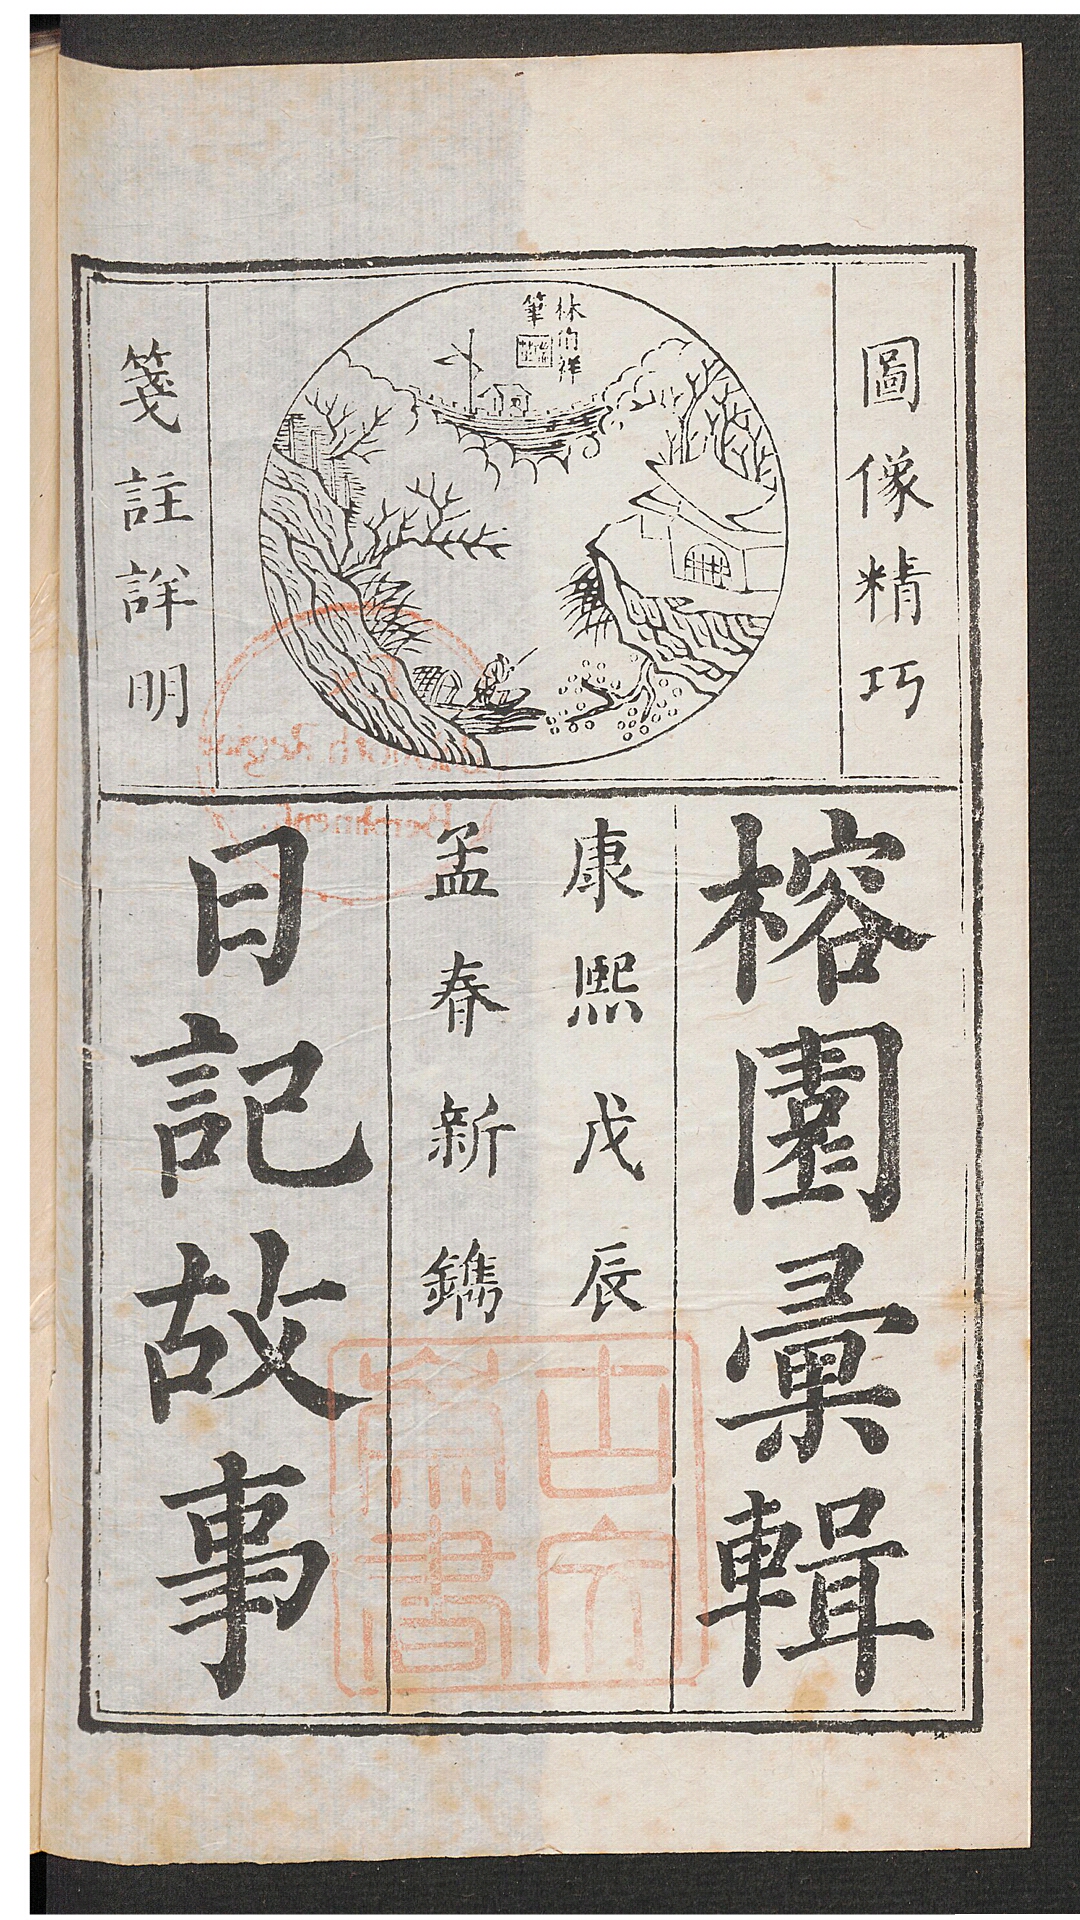 圖像精巧
林伯祥
筆
箋註詳明
榕園彙輯
康熙戊辰
孟春新鐫
日記故事